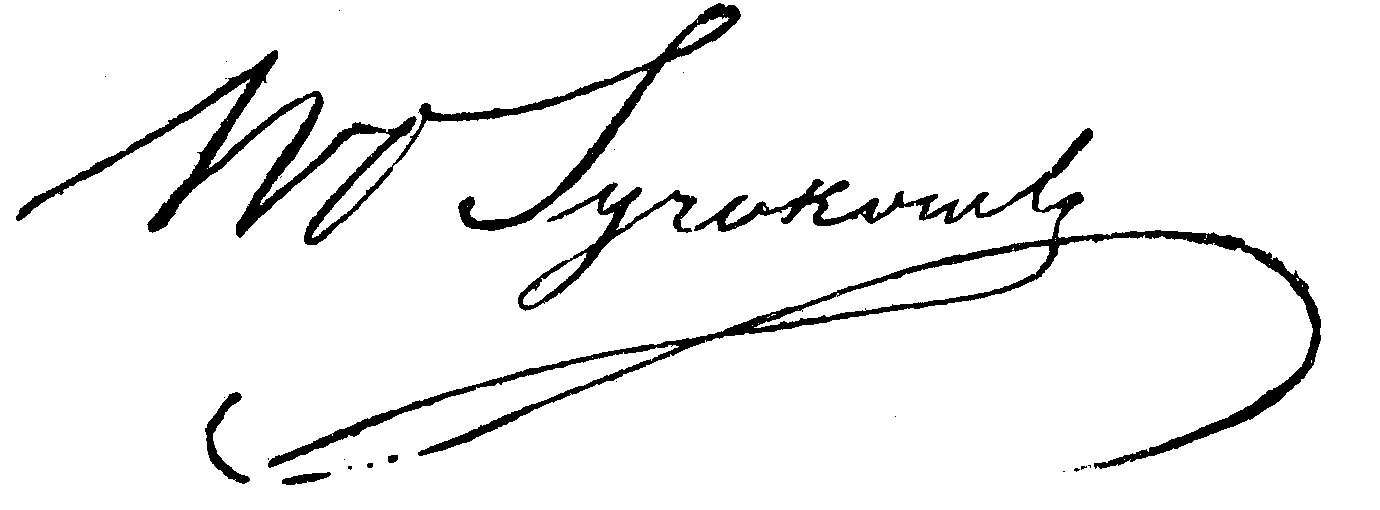 Wł Syrokomla